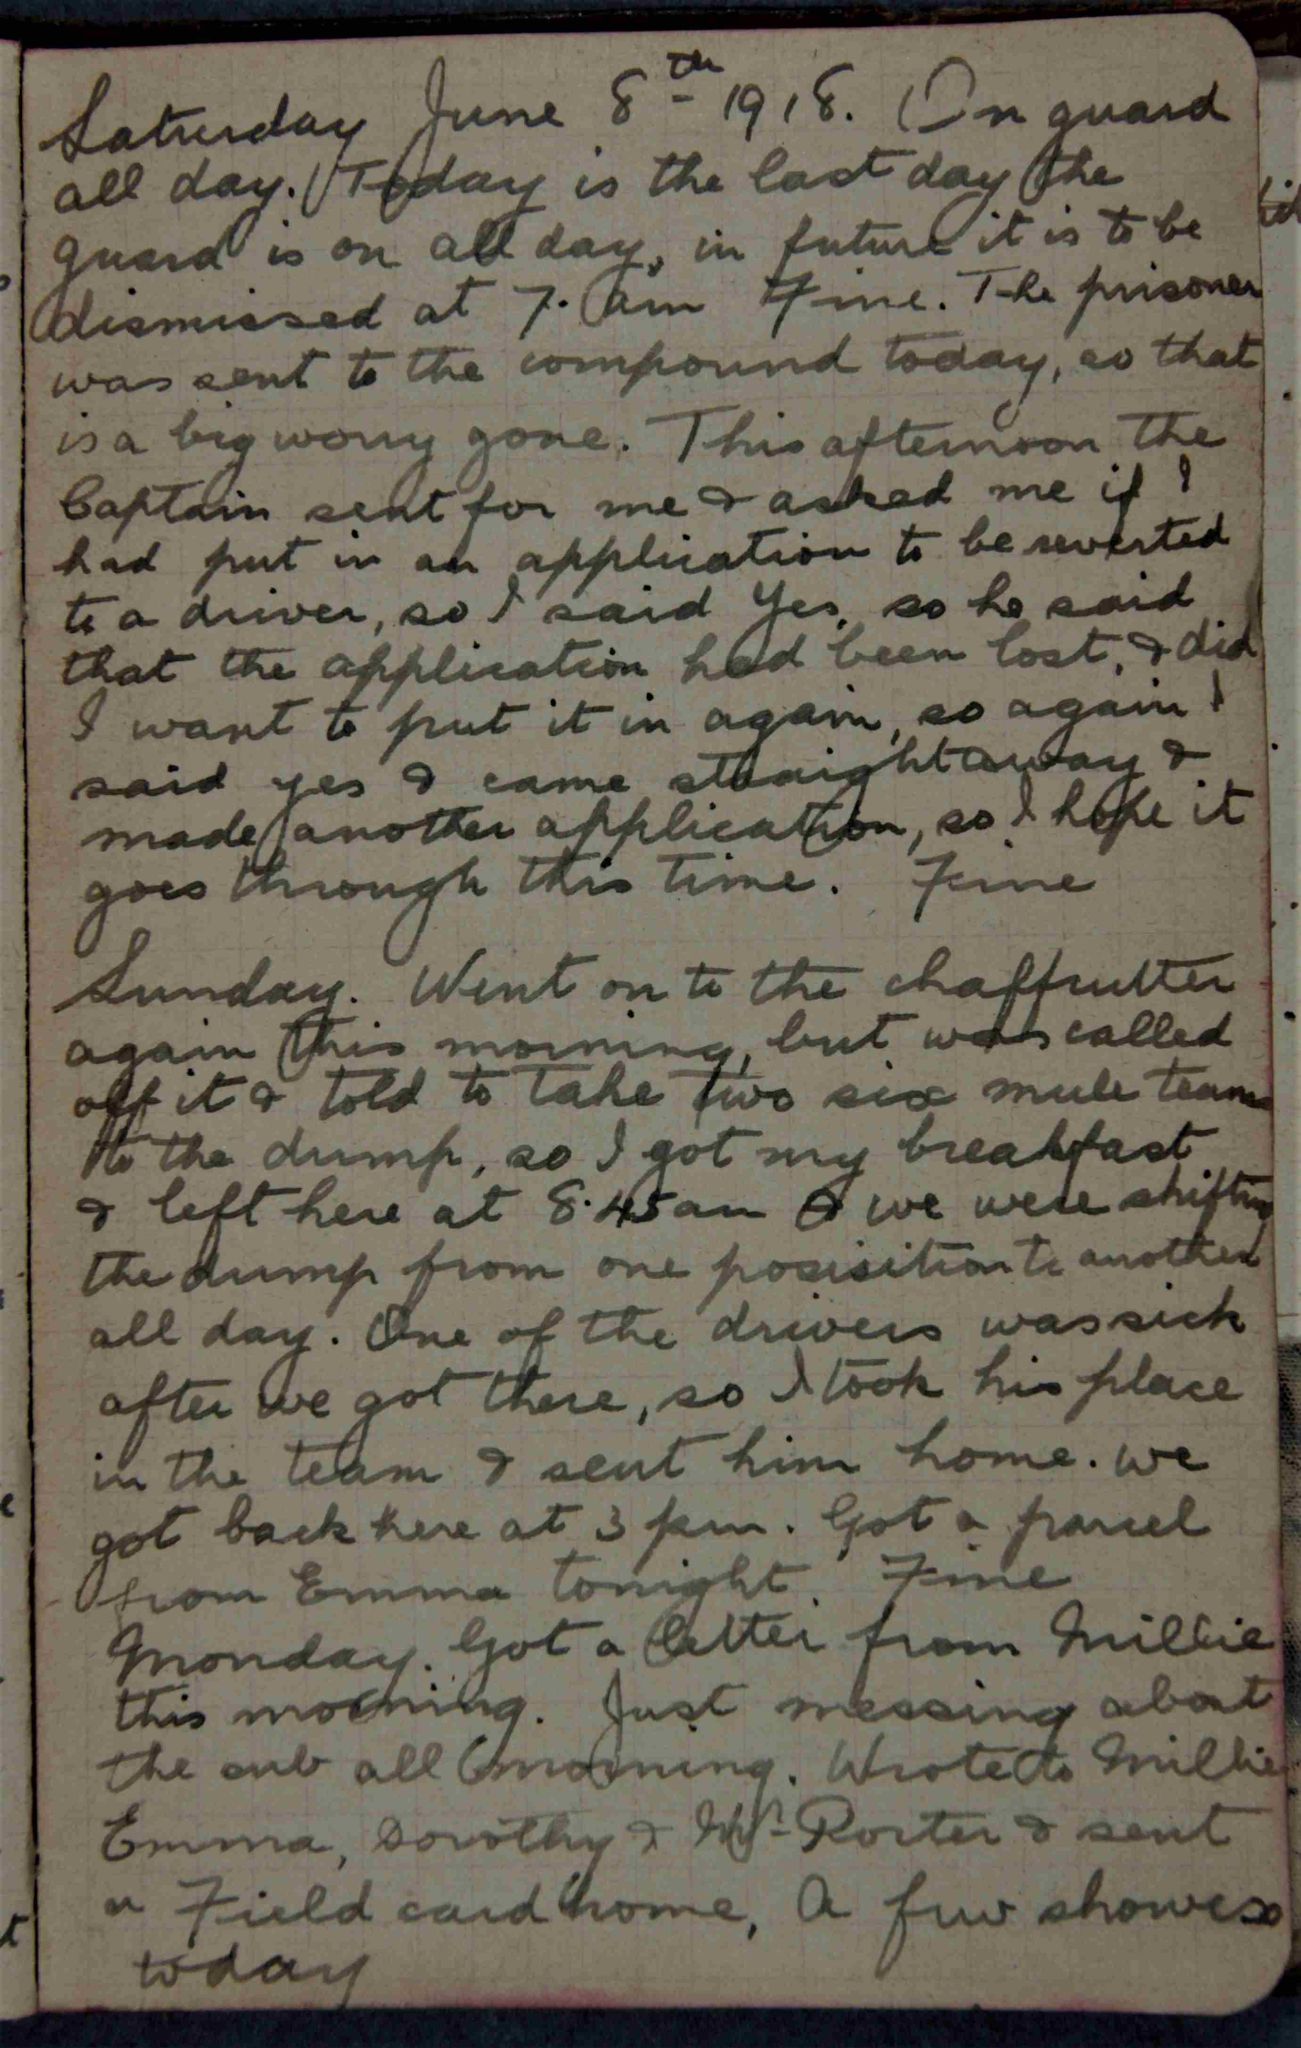 Saturday June 8th 1918. On guard
all day. Today is the last day the
guard is on all day, in future it is to be
dismissed at 7. am Fine. The prisoner
was sent to the compound today, so that
is a big worry gone. This afternoon the
Captain sent for me & asked me if I
had put in an application to be reverted
to a driver, so I said Yes, so he said
that the application had been lost, & did
I want to put it in again, so again I
said yes & came straight away &
made another application, so I hope it
goes through this time. Fine
Sunday. Went on to the chaffcutter
again this morning, but was called
off it & told to take two six mule teams
to the dump, so I got my breakfast
& left here at 8.45 am & we were shifting
the dump from one posisition to another
all day. One of the drivers was sick
after we got there, so I took his place
in the team & sent him home. we
got back here at 3 pm. Got a parcel
from Emma tonight. Fine
Monday. Got a letter from Millie
this morning. Just messing about
the sub all morning. Wrote to Millie
Emma, Dorothy & Porter & sent
a Field card home, A few showers
today